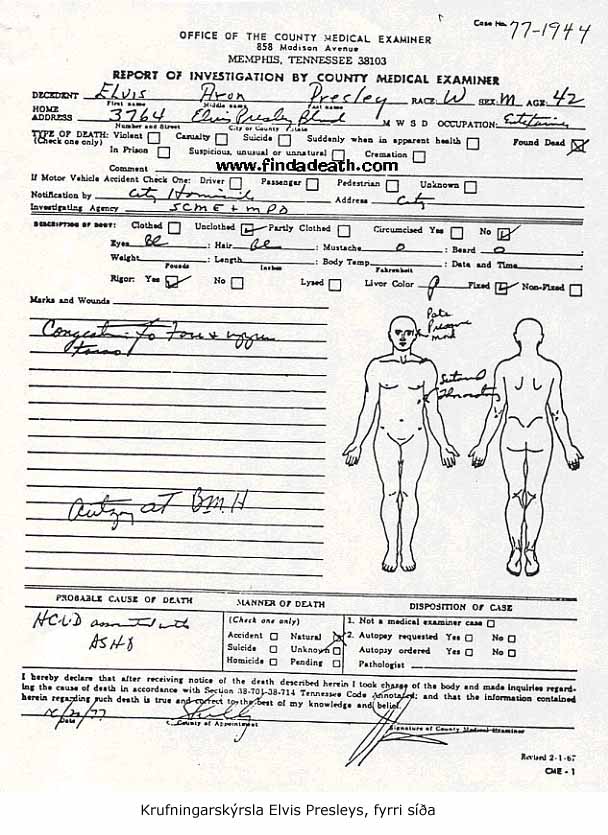 Case No. 77-1944
OFFICE OF THE COUNTY MEDICAL EXAMINER
858 Madison Avenue
MEMPHIS, TENNESSEE 38103
REPORT OF INVESTIGATION BY COUNTY MEDICAL EXAMINER
DECEDENT Elvis Aron Presley RACE: W SEX: M AGE: 42
First name Middle name Last name
HOME ADDRESS 3764 Elvis Presley Blvd M W S D OCCUPATION: Entertainer
Number and Street City or County State
TYPE OF DEATH: Violent Casualty Suicide Suddenly when in apparent health Found Dead
(Check one only)
In Prison Suspicious, unusual or unnatural Cremation
www.findadeath.com
Comment
If Motor Vehicle Accident Check One: Driver Passenger Pedestrian Unknown
Notification by City Homicide Address City
Investigating Agency SCME + MPD
DESCRIPTION OF BODY: Clothed Unclothed Partly Clothed Circumcised Yes No
Eyes Bl : Hair Bl : Mustache 0 : Beard 0
Weight : Length : Body Temp : Date and Time
Pounds Inches Fahrenheit
Rigor: Yes No Lysed Livor Color P Fixed Non-Fixed
Marks and Wounds
Congestion to face & upper
torso
Pressure
Autopsy at BMH
PROBABLE CAUSE OF DEATH
HCVD associated with
ASHD
MANNER OF DEATH
(Check one only)
Accident Natural
Suicide Unknown
Homicide Pending
DISPOSITION OF CASE
1. Not a medical examiner case
2. Autopsy requested Yes No
Autopsy ordered Yes No
Pathologist
I hereby declare that after receiving notice of the death described herein I took charge of the body and made inquiries regard-
ing the cause of death in accordance with Section 38-701-38-714 Tennessee Code Annotated; and that the information contained
herein regarding such death is true and correct to the best of my knowledge and belief.
Shelby
Date County of Appointment Signature of County Medical Examiner
Revised 2-1-67
CME - 1
Krufningarskýrsla Elvis Presleys, fyrri síða